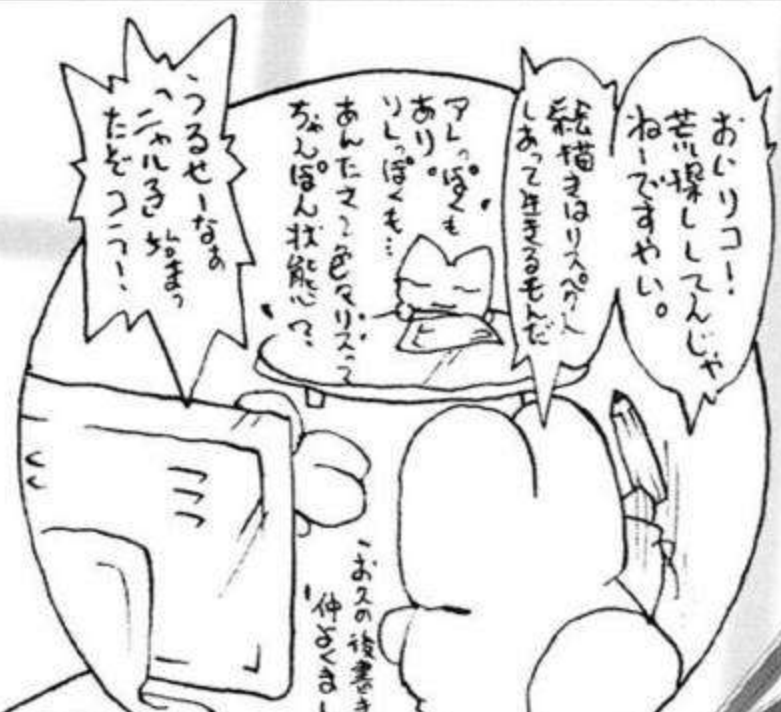 おいリコー!
荒探ししてんじゃ
ねーですやい。
絵描きはリスペクト
しあって生きるもんだ
アレっぽくも
あり。
ソレっぽくも…
あんたさて色々リスって
ちゃんぽん状態で?
うるせーなぁ
たぞコラー!
お久の後書き
仲よくまし